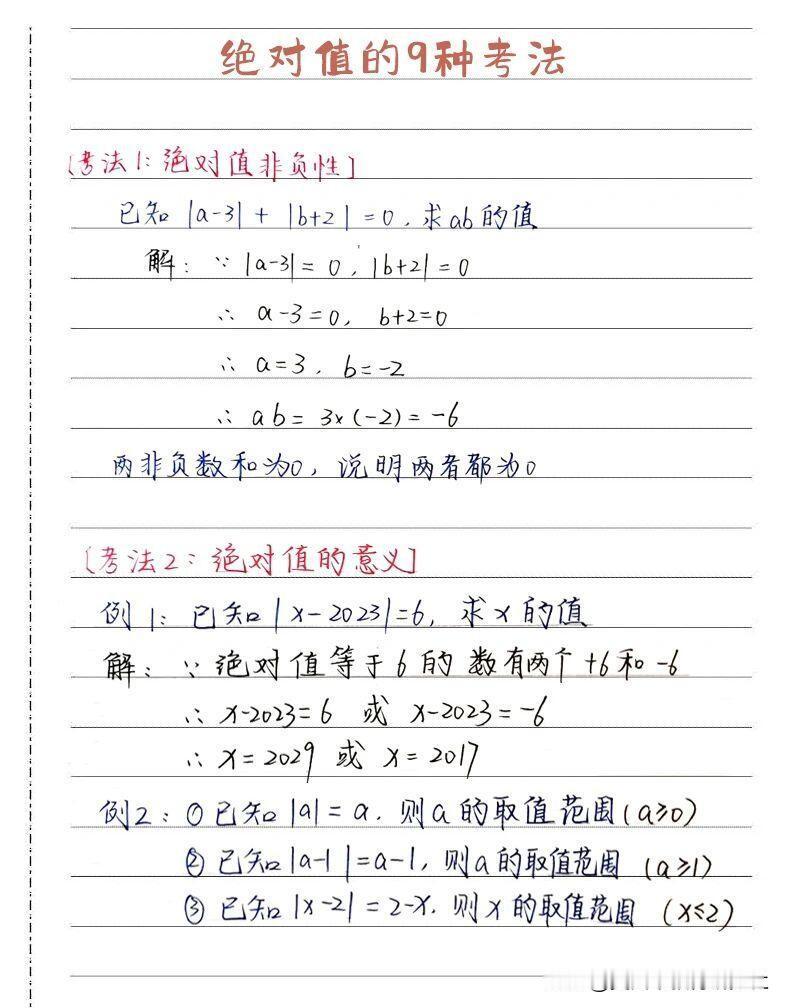 绝对值的9种考法
[考法1:绝对值非负性]
已知|a-3|+|b+2|=0,求ab的值
解:∵|a-3|=0,|b+2|=0
∴a-3=0, b+2=0
∴a=3, b=-2
∴ab=3×(-2)=-6
两非负数和为0,说明两者都为0
[考法2:绝对值的意义]
例1:已知|x-2023|=6,求x的值
解:∵绝对值等于6的数有两个+6和-6
∴x-2023=6 或 x-2023=-6
∴x=2029 或 x=2017
例2:①已知|a|=a,则a的取值范围(a≥0)
②已知|a-1|=a-1,则a的取值范围 (a≥1)
③已知|x-2|=2-x,则x的取值范围 (x≤2)